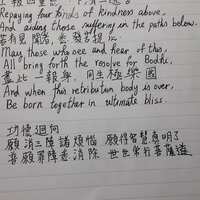 Repaying four kinds of kindness above,
And aiding those suffering in the paths below.
若有見聞者, 悉發菩提心
May those who see and hear of this,
All bring forth the resolve for Bodhi,
盡此一報身, 同生極樂國
And when this retribution body is over,
Be born together in ultimate bliss.
功德迴向
願消三障諸煩惱 願得智慧真明了
普願罪障悉消除 世世常行菩薩道